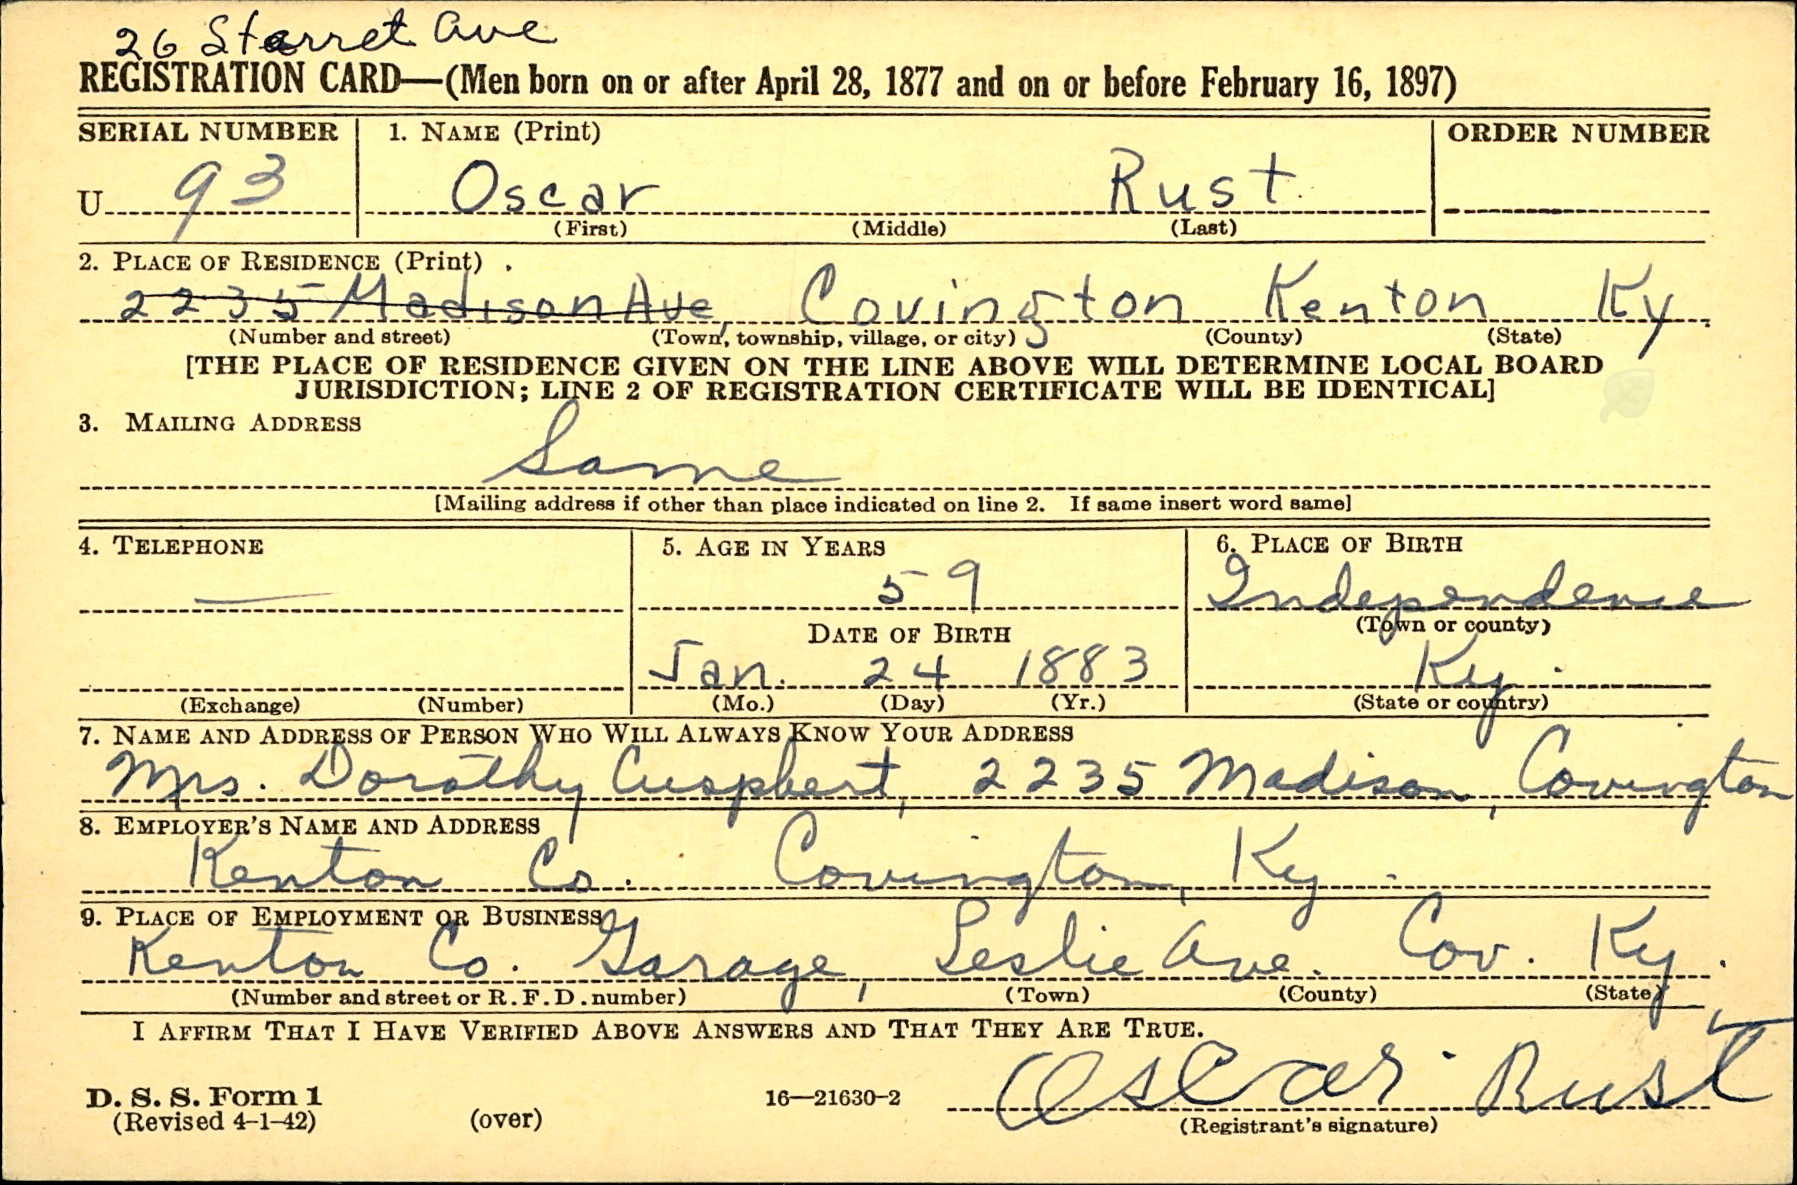 26 Starret Ave
REGISTRATION CARD—(Men born on or after April 28, 1877 and on or before February 16, 1897)
SERIAL NUMBER 1. NAME (Print) ORDER NUMBER
U 93 Oscar Rust
(First) (Middle) (Last)
2. PLACE OF RESIDENCE (Print)
2235 Madison Ave, Covington Kenton Ky.
(Number and street) (Town, township, village, or city) (County) (State)
[THE PLACE OF RESIDENCE GIVEN ON THE LINE ABOVE WILL DETERMINE LOCAL BOARD
JURISDICTION; LINE 2 OF REGISTRATION CERTIFICATE WILL BE IDENTICAL]
3. MAILING ADDRESS
Same
[Mailing address if other than place indicated on line 2. If same insert word same]
4. TELEPHONE 5. AGE IN YEARS 6. PLACE OF BIRTH
— 59 Independence
DATE OF BIRTH (Town or county)
Jan. 24 1883 Ky.
(Exchange) (Number) (Mo.) (Day) (Yr.) (State or country)
7. NAME AND ADDRESS OF PERSON WHO WILL ALWAYS KNOW YOUR ADDRESS
Mrs. Dorothy Cuspbert, 2235 Madison, Covington
8. EMPLOYER'S NAME AND ADDRESS
Kenton Co. Covington, Ky.
9. PLACE OF EMPLOYMENT OR BUSINESS
Kenton Co. Garage, Leslie Ave. Cov. Ky.
(Number and street or R. F. D. number) (Town) (County) (State)
I AFFIRM THAT I HAVE VERIFIED ABOVE ANSWERS AND THAT THEY ARE TRUE.
Oscar Rust
D. S. S. Form 1 16—21630-2
(Revised 4-1-42) (over) (Registrant's signature)